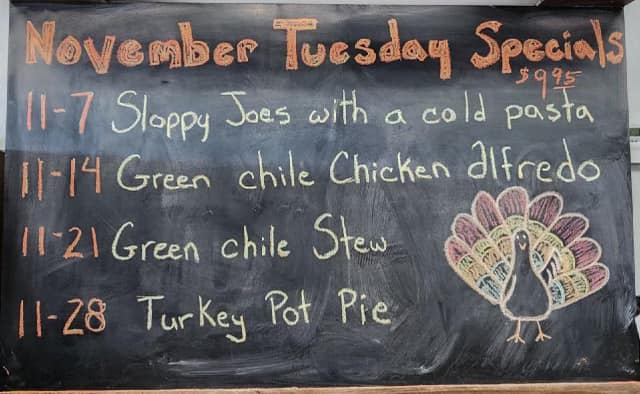 November Tuesday Specials
$9.95
11-7 Sloppy Joes with a cold pasta
11-14 Green chile Chicken Alfredo
11-21 Green chile Stew
11-28 Turkey Pot Pie